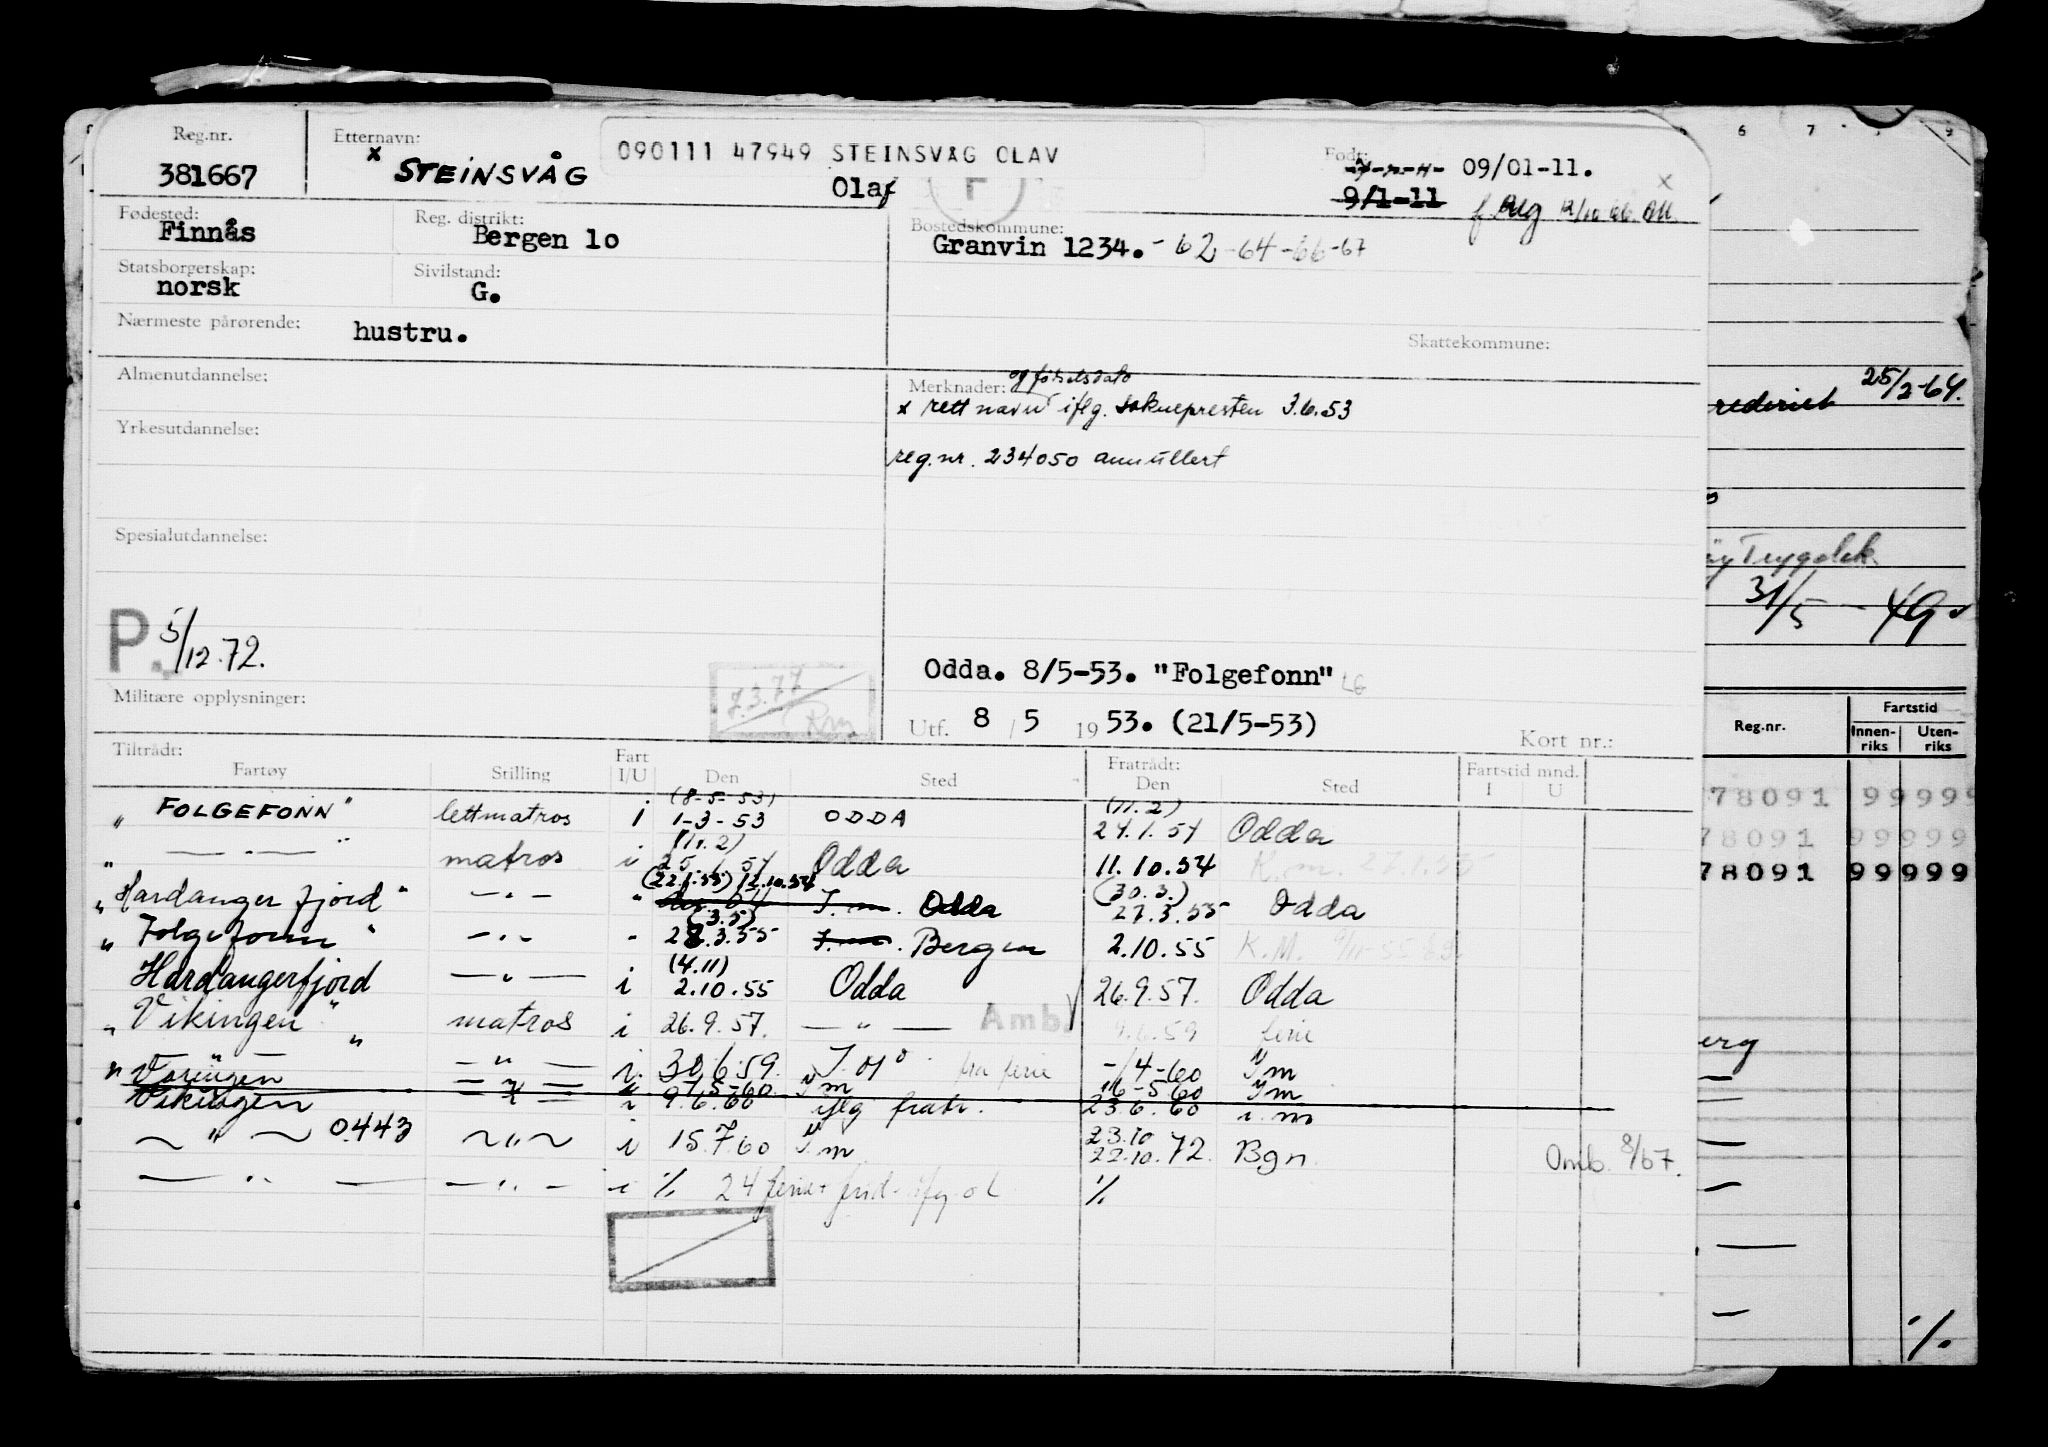 Reg.nr. Etternavn: Født:
090111 47949 STEINSVÅG OLAV
381667 x STEINSVÅG Olaf 09/01-11.
9/1-11 x
Fødested: Reg. distrikt: Bostedskommune:
Finnås Bergen 10 Granvin 1234. - 62 -64 -66 -67
Statsborgerskap: Sivilstand:
norsk G.
Nærmeste pårørende:
hustru.
Skattekommune:
Almenutdannelse: Merknader: og fødselsdato
x rett navn iflg. soknepresten 3.6.53
Yrkesutdannelse:
reg.nr. 234050 annullert
Spesialutdannelse:
P. 5/12.72.
Odda. 8/5-53. "Folgefonn"
7.3.77
Militære opplysninger: Utf. 8 / 5 1953. (21/5-53)
Kort nr.:
Tiltrådt: Fratrådt:
Fartøy Stilling Fart I/U Den Sted Den Sted Fartstid mnd. I U
(8-5-53) (11.2)
" FOLGEFONN" lettmatros i 1-3-53 ODDA 24.1.54 Odda
(11.2)
" — " — " matros i 25.1.54 Odda 11.10.54 K.m. 27.1.55
(22.1.55) 12.10.54 (30.3.)
"Hardangerfjord" — " — " Odda 27.3.55 Odda
(3.5)
" Folgefonn " — " — " 28.3.55 Bergen 2.10.55 K.M.
(4.11)
Hardangerfjord — " — i 2.10.55 Odda 26.9.57. Odda
" Vikingen " matros i 26.9.57. — " — Amb. 59 ferie
" Vøringen — " — i. 30.6.59. fra ferie -/4-60 I m
— " — 7.5-60. I m 16-5-60 I m
Vikingen — " — i 9.6.60 iflg fratr. 23.6.60 i.m
~ " ~ 0443 ~ " ~ i 15.7.60 I m 23.10 22.10.72. Bgn Omb. 8/67.
— " — — " — i % 24 ferie + frid %
6 7 9
rederiet 25/2-64.
Trygdek.
31/5 - 49
Reg.nr. Fartstid
Innen-riks Uten-riks
78091 99999
78091 99999
78091 99999
erg
%